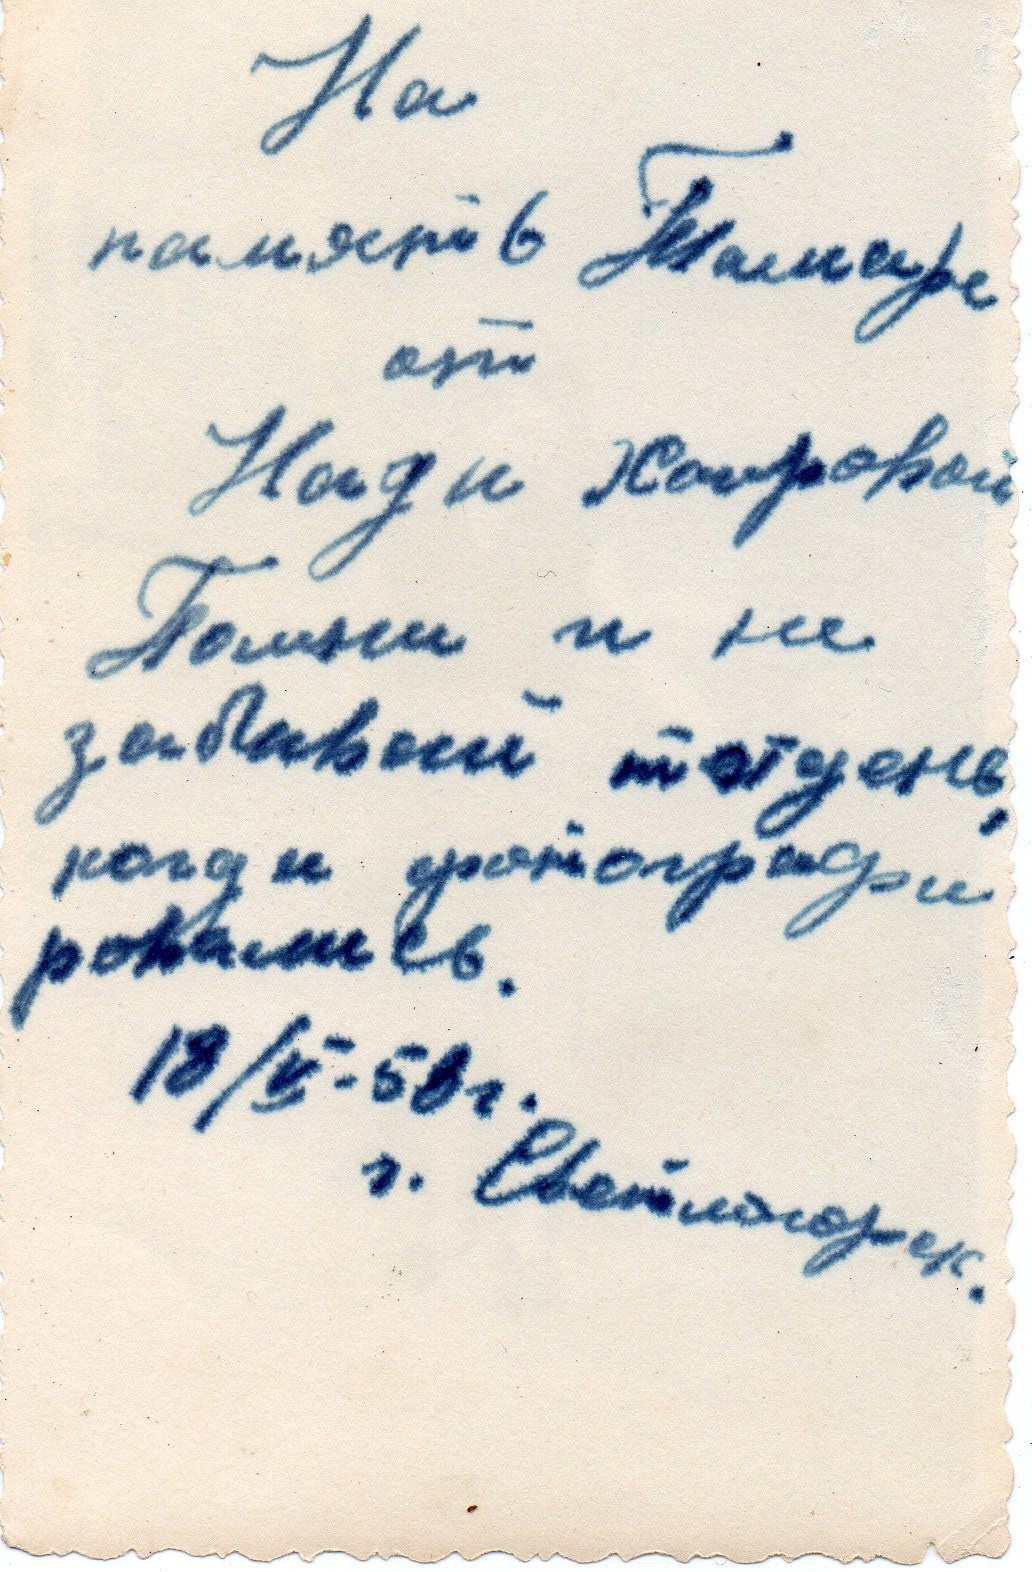 На
память Тамаре
от
Нади Хаировой
Помни и не
забывай тот день,
когда фотографи
ровались.
18/VI-58г.
г. Светлогорск.